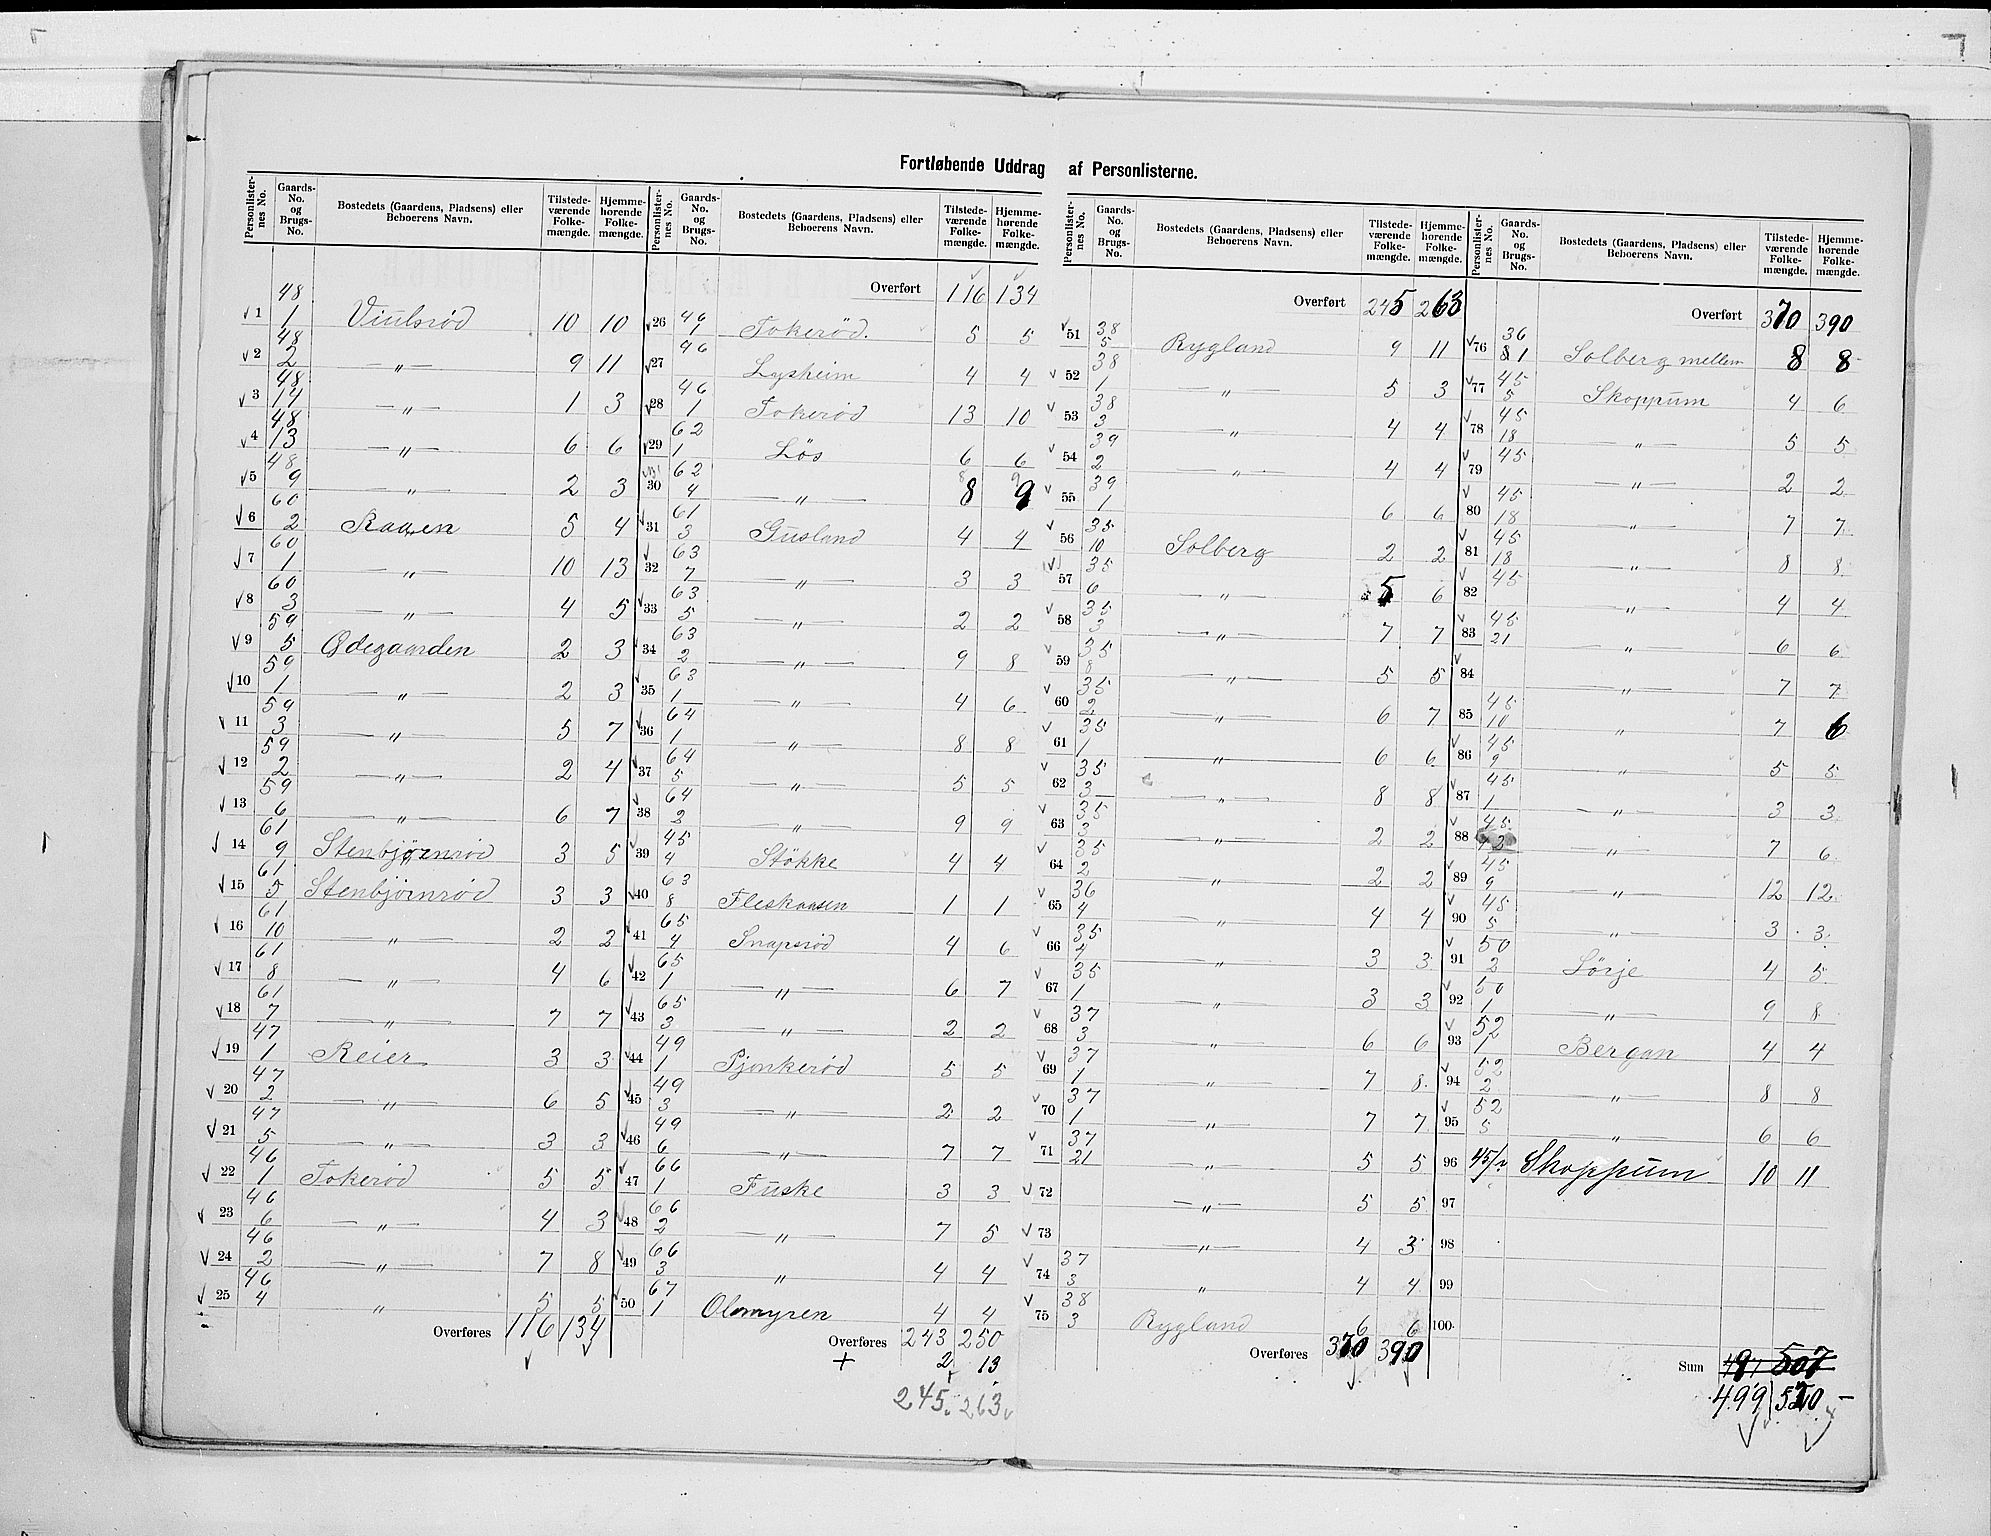 Fortløbende Uddrag af Personlisterne.
Personlisternes No. | Gaards-No. og Brugs-No. | Bostedets (Gaardens, Pladsens) eller Beboerens Navn. | Tilstedeværende Folkemængde. | Hjemmehørende Folkemængde.
1 | 48/1 | Viulsrød | 10 | 10
2 | 48/2 | —„— | 9 | 11
3 | 48/14 | —„— | 1 | 3
4 | 48/13 | —„— | 6 | 6
5 | 48/9 | —„— | 2 | 3
6 | 60/2 | Raaen | 5 | 4
7 | 60/1 | —„— | 10 | 13
8 | 60/3 | —„— | 4 | 5
9 | 59/5 | Ødegaarden | 2 | 3
10 | 59/1 | —„— | 2 | 3
11 | 59/3 | —„— | 5 | 7
12 | 59/2 | —„— | 2 | 4
13 | 59/6 | —„— | 6 | 7
14 | 61/9 | Stenbjørnrød | 3 | 5
15 | 61/5 | Stenbjørnrød | 3 | 3
16 | 61/10 | —„— | 2 | 2
17 | 61/8 | —„— | 4 | 6
18 | 61/7 | —„— | 7 | 7
19 | 47/1 | Reier | 3 | 3
20 | 47/2 | —„— | 6 | 5
21 | 47/5 | —„— | 3 | 3
22 | 46/1 | Tokerød | 5 | 5
23 | 46/6 | —„— | 4 | 3
24 | 46/2 | —„— | 7 | 8
25 | 46/4 | „ | 5 | 5
Overføres 116 134
Personlisternes No. | Gaards-No. og Brugs-No. | Bostedets (Gaardens, Pladsens) eller Beboerens Navn. | Tilstedeværende Folkemængde. | Hjemmehørende Folkemængde.
Overført 116 134
26 | 46/1 | Tokerød. | 5 | 5
27 | 46 | Lysheim | 4 | 4
28 | 46/1 | Tokerød | 13 | 10
29 | 62/1 | Løs | 6 | 6
30 | 62/4 | —„— | 8 | 9
31 | 61/3 | Gusland | 4 | 4
32 | 63/7 | —„— | 3 | 3
33 | 63/5 | —„— | 2 | 2
34 | 63/2 | —„— | 9 | 8
35 | 63/1 | —„— | 4 | 6
36 | 64/1 | —„— | 8 | 8
37 | 64/5 | —„— | 5 | 5
38 | 64/2 | —„— | 9 | 9
39 | 45/4 | Stökke | 4 | 4
40 | 63/8 | Fleskaasen | 1 | 1
41 | 65/4 | Snapsrød | 4 | 6
42 | 65/1 | —„— | 6 | 7
43 | 65/3 | —„— | 2 | 2
44 | 49/1 | Pjonkerød | 5 | 5
45 | 49/3 | —„— | 2 | 2
46 | 49/6 | —„— | 7 | 7
47 | 66/1 | Fuske | 3 | 3
48 | 66/2 | —„— | 7 | 5
49 | 66/3 | „ | 4 | 4
50 | 67/1 | Olomyren | 4 | 4
Overføres 243 250
+ 2 13
245 263
Personlisternes No. | Gaards-No. og Brugs-No. | Bostedets (Gaardens, Pladsens) eller Beboerens Navn. | Tilstedeværende Folkemængde. | Hjemmehørende Folkemængde.
Overført 245 263
51 | 38/5 | Rygland | 9 | 11
52 | 38/1 | —„— | 5 | 3
53 | 38/3 | —„— | 4 | 4
54 | 39/2 | —„— | 4 | 4
55 | 39/1 | 6 | 6
56 | 35/10 | Solberg | 2 | 2
57 | 35/6 | —„— | 5 | 6
58 | 35/3 | —„— | 7 | 7
59 | 35/8 | —„— | 5 | 5
60 | 35/2 | —„— | 6 | 7
61 | 35/1 | —„— | 6 | 6
62 | 35/3 | —„— | 8 | 8
63 | 35/3 | —„— | 2 | 2
64 | 35/2 | —„— | 2 | 2
65 | 36/4 | —„— | 4 | 4
66 | 35/4 | —„— | 3 | 3
67 | 35/1 | —„— | 3 | 3
68 | 37/3 | —„— | 6 | 6
69 | 37/1 | —„— | 7 | 8
70 | 37/1 | —„— | 7 | 7
71 | 37/21 | —„— | 5 | 5
72 | —„— | 5 | 5
73 | —„— | 4 | 3
74 | 37/3 | „ | 4 | 4
75 | 38/3 | Rygland | 6 | 6
Overføres 370 390
Personlisternes No. | Gaards-No. og Brugs-No. | Bostedets (Gaardens, Pladsens) eller Beboerens Navn. | Tilstedeværende Folkemængde. | Hjemmehørende Folkemængde.
Overført 370 390
76 | 36/1 | Solberg mellem | 8 | 8
77 | 45/5 | Skoppum | 4 | 6
78 | 45/18 | —„— | 5 | 5
79 | 45 | —„— | 2 | 2
80 | 45/18 | —„— | 7 | 7
81 | 45/18 | —„— | 8 | 8
82 | 45 | —„— | 4 | 4
83 | 45/21 | —„— | 6 | 6
84 | —„— | 7 | 7
85 | 45/10 | „ | 7 | 6
86 | 45/9 | —„— | 5 | 5
87 | 45/1 | —„— | 3 | 3
88 | 45/3 | —„— | 7 | 6
89 | 45/9 | —„— | 12 | 12
90 | 45/5 | —„— | 3 | 3
91 | 50/2 | Sörje | 4 | 5
92 | 50/1 | —„— | 9 | 8
93 | 52/1 | Bergan | 4 | 4
94 | 52/2 | —„— | 8 | 8
95 | 52/5 | —„— | 6 | 6
96 | 45/ | Skoppum | 10 | 11
97
98
99
100
Sum 497 507
499 520